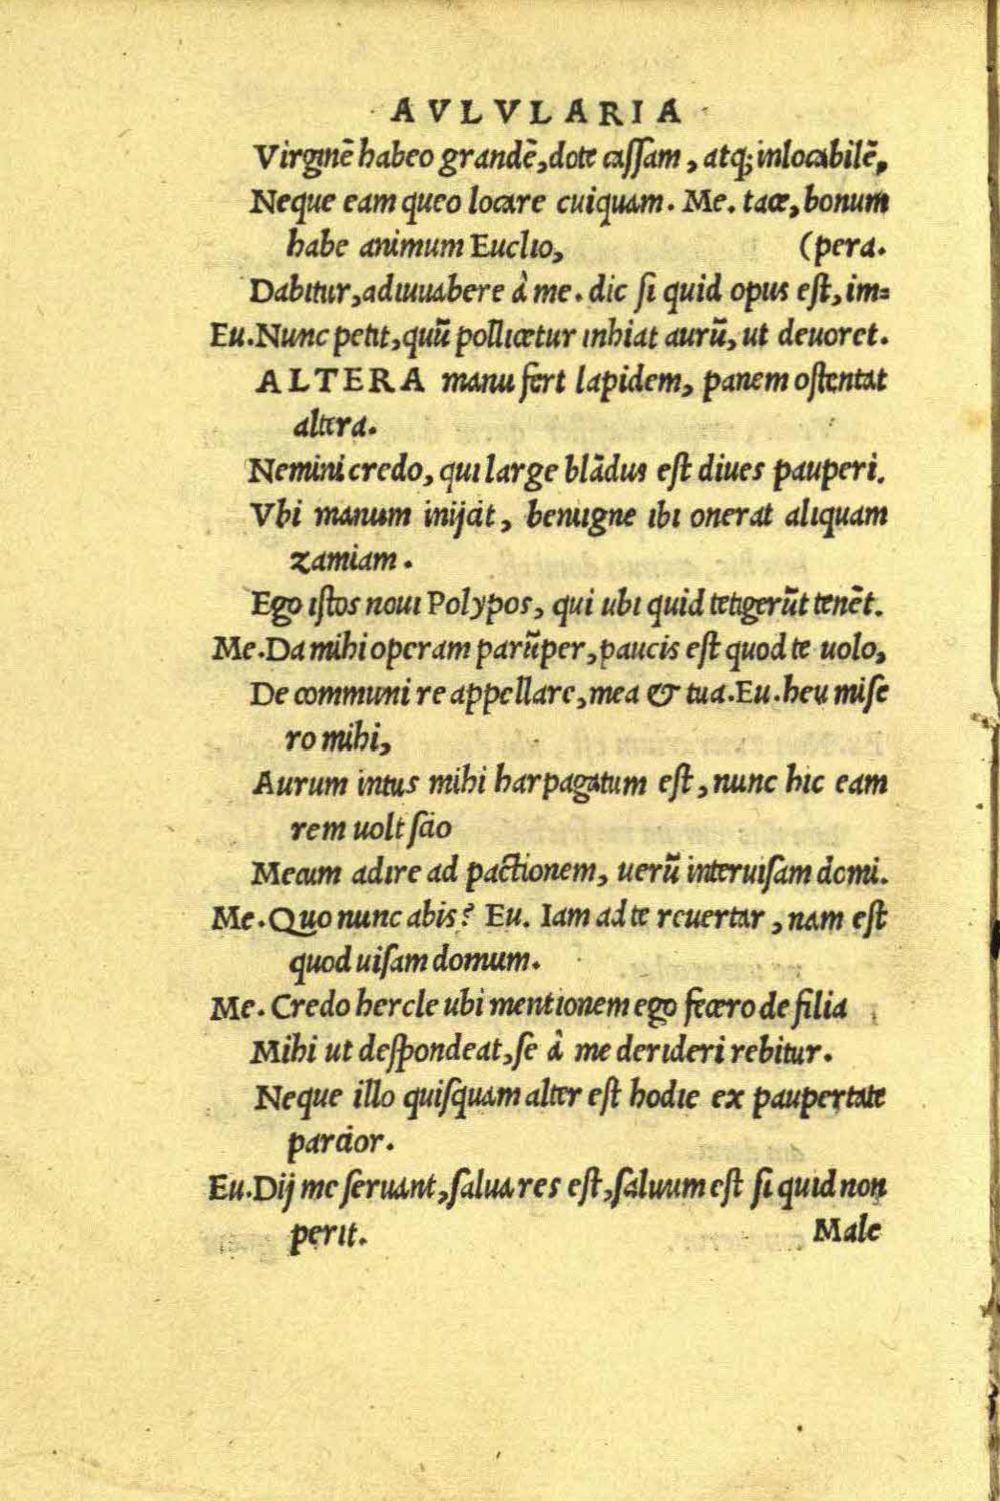 AVLVLARIA
Virginē habeo grandē, dote cassam, atq; inlocabilē,
Neque eam queo locare cuiquam. Me. tace, bonum
habe animum Euclio, (pera.
Dabitur, adiuuabere à me. dic si quid opus est, im=
Eu. Nunc petit, quū pollicetur inhiat aurū, ut deuoret.
ALTERA manu fert lapidem, panem ostentat
altera.
Nemini credo, qui large blādus est diues pauperi.
Vbi manum inijcit, benigne ibi onerat aliquam
zamiam.
Ego istos noui Polypos, qui ubi quid tetigerūt tenēt.
Me. Da mihi operam parūper, paucis est quod te uolo,
De communi re appellare, mea & tua. Eu. heu mise
ro mihi,
Aurum intus mihi harpagatum est, nunc hic eam
rem uolt scio
Mecum adire ad pactionem, uerū interuisam domi.
Me. Quo nunc abis? Eu. Iam ad te reuertar, nam est
quod uisam domum.
Me. Credo hercle ubi mentionem ego fecero de filia
Mihi ut despondeat, se à me derideri rebitur.
Neque illo quisquam alter est hodie ex paupertate
parcior.
Eu. Dij me seruant, salua res est, saluum est si quid non
perit. Male